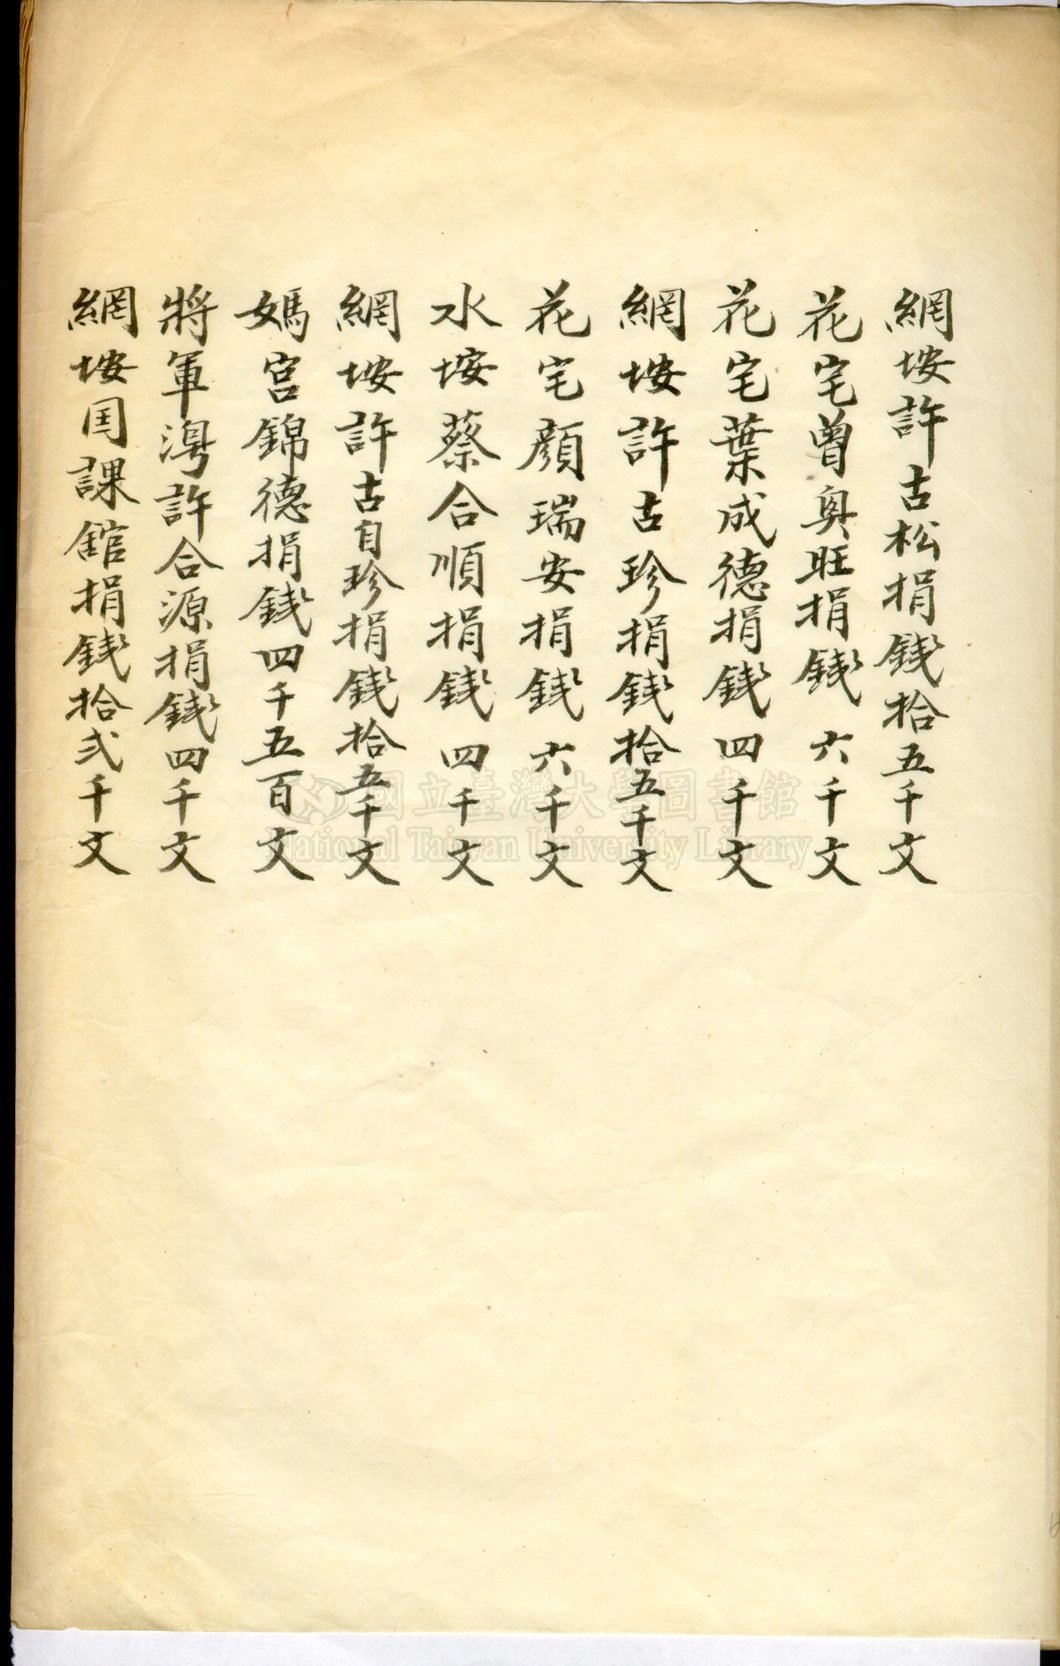 網垵許古松捐錢拾五千文
花宅曾奥旺捐錢六千文
花宅葉成德捐錢四千文
網垵許古珍捐錢拾五千文
花宅顏瑞安捐錢六千文
水垵蔡合順捐錢四千文
網垵許古自珍捐錢拾五千文
媽宮錦德捐錢四千五百文
將軍澚許合源捐錢四千文
網垵課舘捐錢拾弍千文
國立臺灣大學圖書館
National Taiwan University Library